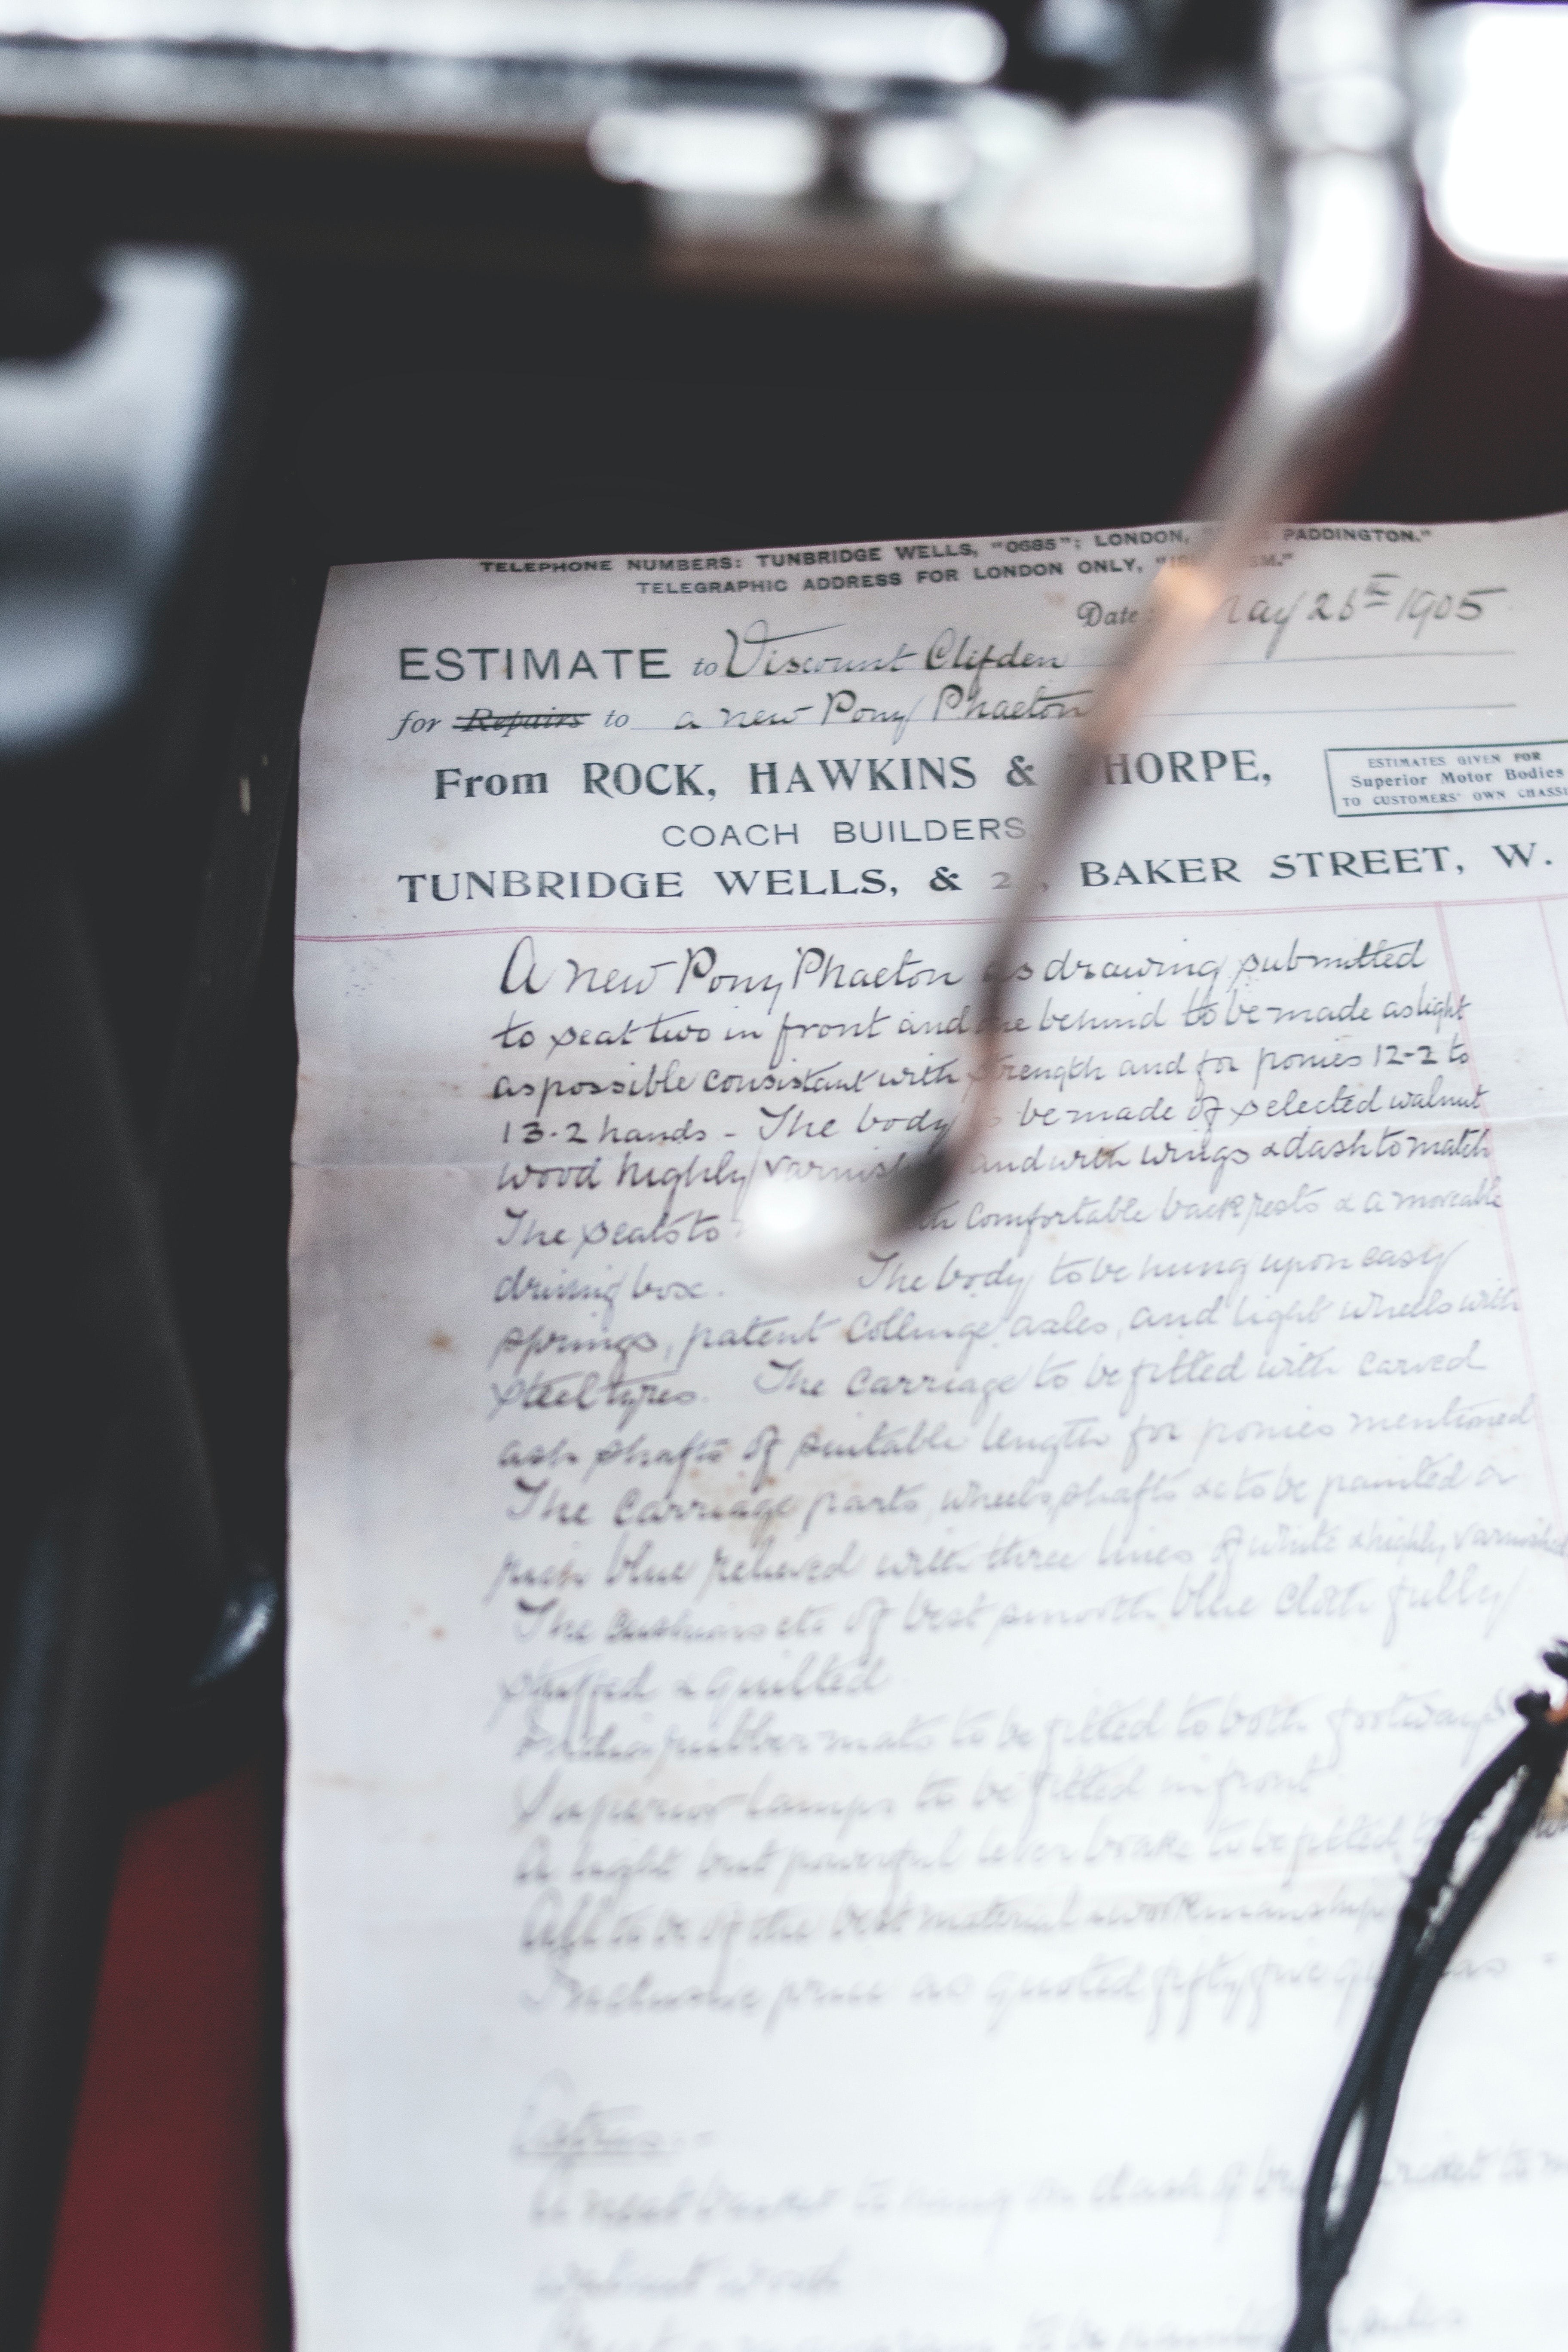 TELEPHONE NUMBERS: TUNBRIDGE WELLS, "0685"; LONDON, PADDINGTON."
TELEGRAPHIC ADDRESS FOR LONDON ONLY,
Date 1905
ESTIMATE to Viscount Clifden
for Repairs to a new Pony Phaeton
From ROCK, HAWKINS & THORPE,
ESTIMATES GIVEN FOR
Superior Motor Bodies
TO CUSTOMERS' OWN
COACH BUILDERS
TUNBRIDGE WELLS, & BAKER STREET, W.
A new Pony Phaeton as drawing submitted
to seat two in front and behind to be made as light
as possible consistant with strength and for ponies 12-2 to
13-2 hands - The body be made of selected walnut
wood highly and with wings & dash to match
The seats to comfortable back rests & a moveable
driving box. The body to be hung upon easy
springs, patent Collinge axles, and light wheels with
steel tyres. The carriage to be fitted with carved
ash shafts of suitable length for ponies mentioned
The carriage parts, wheels, shafts &c to be painted a
blue relieved with three lines of white & highly varnished
The cushions etc of best smooth blue cloth fully
stuffed & quilted
rubber mats to be fitted to both footways
Superior lamps to be fitted in front
A light but powerful lever brake to be fitted
All to be of the best material & workmanship
Inclusive price as quoted fifty five
Extras:-